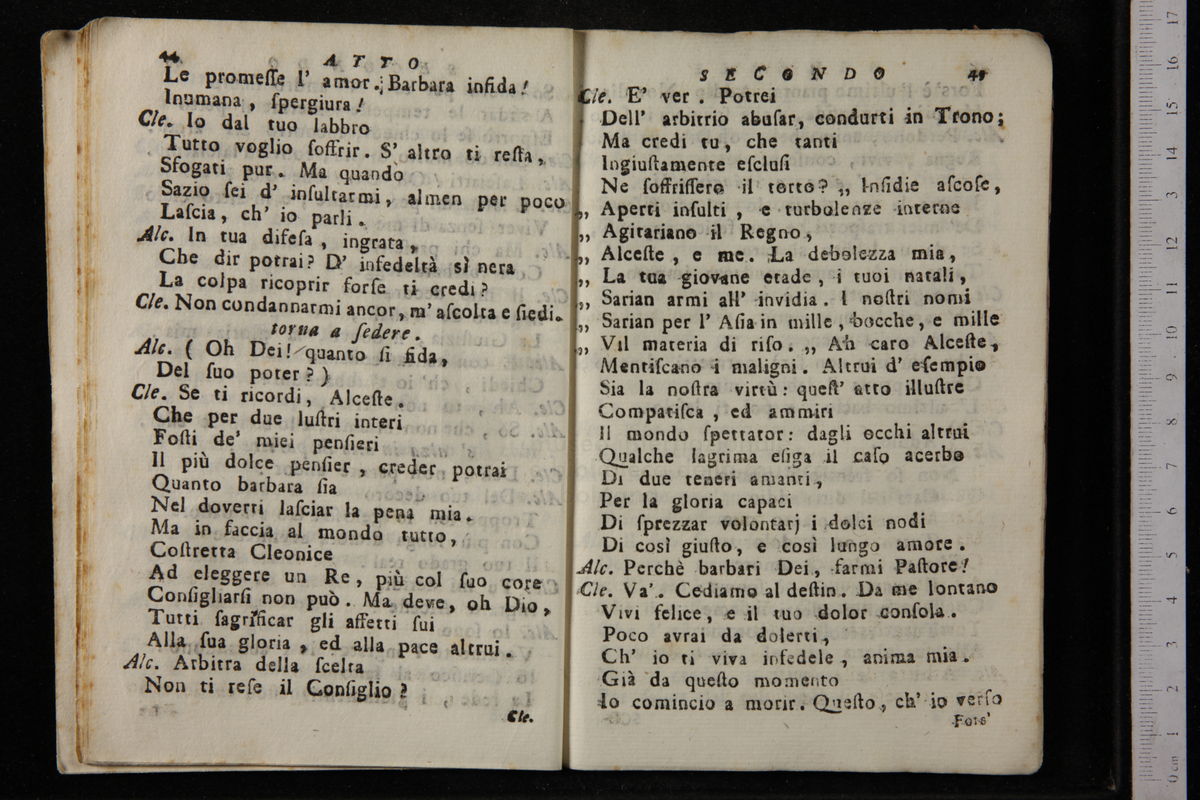 44
ATTO
Le promeſſe l' amor. Barbara infida!
Inumana, ſpergiura!
Cle. Io dal tuo labbro
Tutto voglio ſoffrir. S' altro ti reſta,
Sfogati pur. Ma quandò
Sazio ſei d' inſultarmi, almen per poco
Laſcia, ch' io parli.
Alc. In tua difeſa, ingrata,
Che dir potrai? D' infedeltà sì nera
La colpa ricoprir forſe ti credi?
Cle. Non condannarmi ancor, m' aſcolta e ſiedi.
torna a ſedere.
Alc. ( Oh Dei! quanto ſi fida,
Del ſuo poter? )
Cle. Se ti ricordi, Alceſte.
Che per due luſtri interi
Foſti de' miei penſieri
Il più dolce penſier, creder potrai
Quanto barbara ſia
Nel doverti laſciar la pena mia.
Ma in faccia al mondo tutto,
Coſtretta Cleonice
Ad eleggere un Re, più col ſuo core
Conſigliarſi non può. Ma deve, oh Dio,
Tutti ſagrificar gli affetti ſui
Alla ſua gloria, ed alla pace altrui.
Alc. Arbitra della ſcelta
Non ti reſe il Conſiglio?
Cle.
SECONDO
45
Cle. E' ver. Potrei
Dell' arbitrio abuſar, condurti in Trono;
Ma credi tu, che tanti
Ingiuſtamente eſcluſi
Ne ſoffriſſero il torto? „ Inſidie aſcoſe,
„ Aperti inſulti, e turbolenze interne
„ Agitariano il Regno,
„ Alceſte, e me. La debolezza mia,
„ La tua giovane etade, i tuoi natali,
„ Sarian armi all' invidia. I noſtri nomi
„ Sarian per l' Aſia in mille, bocche, e mille
„ Vil materia di riſo. „ Ah caro Alceſte,
Mentiſcano i maligni. Altrui d' eſempio
Sia la noſtra virtù: queſt' atto illuſtre
Compatiſca, ed ammiri
Il mondo ſpettator: dagli occhi altrui
Qualche lagrima eſiga il caſo acerbo
Di due teneri amanti,
Per la gloria capaci
Di ſprezzar volontarj i dolci nodi
Di così giuſto, e così lungo amore.
Alc. Perchè barbari Dei, farmi Paſtore!
Cle. Va'. Cediamo al deſtin. Da me lontano
Vivi felice, e il tuo dolor conſola.
Poco avrai da dolerti,
Ch' io ti viva infedele, anima mia.
Già da queſto momento
Io comincio a morir. Queſto, ch' io verſo
Fors'